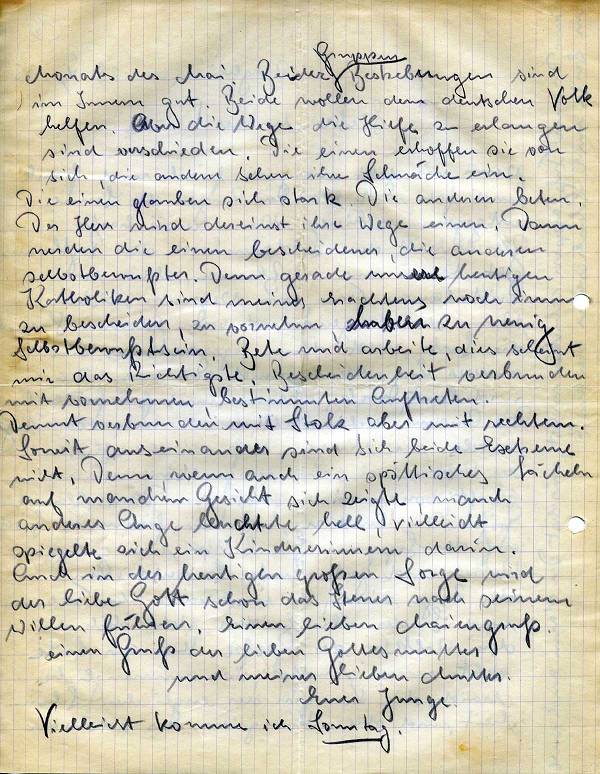 Gruppen
Monats des Mai. Beider Bestrebungen sind
im Innern gut. Beide wollen dem deutschen Volk
helfen. Aber die Wege die Hilfe zu erlangen
sind verschieden. Die einen erhoffen sie von
sich, die andern sehen ihre Schwäche ein.
Die einen glauben sich stark. Die anderen beten.
Der Herr wird dereinst ihre Wege einen. Dann
werden die einen bescheidener, die anderen
selbstbewußter. Denn gerade heutigen
Katholiken sind meines Erachtens noch immer
zu bescheiden, zu vornehm haben zu wenig
Selbstbewußtsein. Bete und arbeite, dies scheint
mir das Richtigste. Bescheidenheit verbunden
mit vornehmen bestimmten Auftreten.
Demut verbunden mit Stolz aber mit rechtem.
Soweit auseinander sind sich beide Extreme
nicht. Denn wenn auch ein spöttisches Lächeln
auf manchem Gesicht sich zeigte, manch
anderes Auge leuchtete hell, vielleicht
spiegelte sich ein Kinderinnern darin.
Auch in der heutigen großen Sorge wird
der liebe Gott schon das Steuer nach seinem
Willen führen. Einen lieben Maiengruß.
einen Gruß der lieben Gottesmutter
und meiner lieben Mutter.
Euer Junge.
Vielleicht komme ich Sonntag.